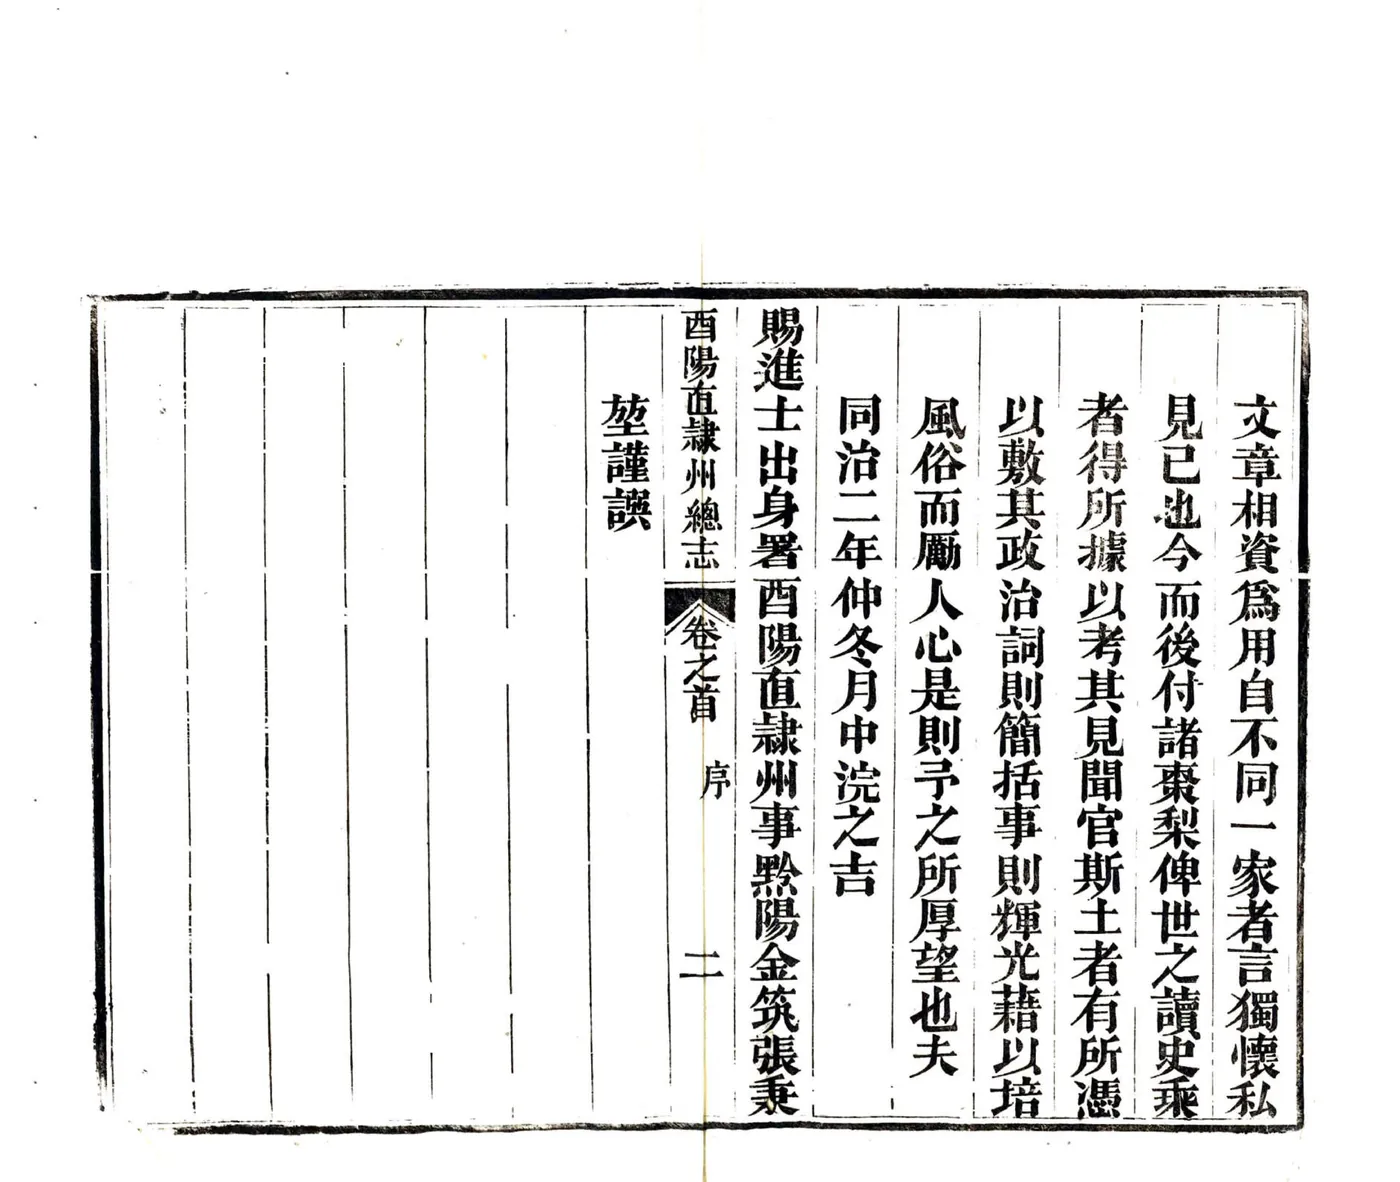 文章相資爲用自不同一家者言獨懷私
見已也今而後付諸棗梨俾世之讀史乘
者得所據以考其見聞官斯土者有所憑
以敷其政治詞則簡括事則輝光藉以培
風俗而勵人心是則予之所厚望也夫
同治二年仲冬月中浣之吉
賜進士出身署酉陽直隷州事黔陽金筑張秉
酉陽直隷州總志
卷之首
序
二
堃謹譔